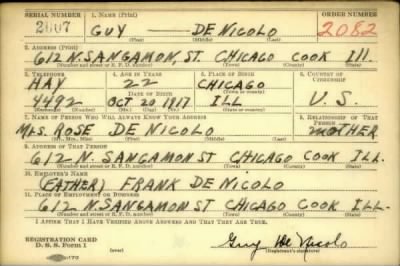 SERIAL NUMBER 1. NAME (Print) ORDER NUMBER
2007 GUY — DE NICOLO 2082
(First) (Middle) (Last)
2. ADDRESS (Print)
612 N. SANGAMON, ST. CHICAGO COOK Ill.
(Number and street or R. F. D. number) (Town) (County) (State)
3. TELEPHONE 4. AGE IN YEARS 5. PLACE OF BIRTH 6. COUNTRY OF CITIZENSHIP
HAY 22 CHICAGO
DATE OF BIRTH
4492 OCT 20 1917 ILL U.S.
(Exchange) (Number) (Mo.) (Day) (Yr.) (State or country)
7. NAME OF PERSON WHO WILL ALWAYS KNOW YOUR ADDRESS 8. RELATIONSHIP OF THAT PERSON
MRS. ROSE DE NICOLO MOTHER
(Mr., Mrs., Miss) (First) (Middle) (Last)
9. ADDRESS OF THAT PERSON
612 N. SANGAMON ST CHICAGO COOK ILL.
(Number and street or R. F. D. number) (Town) (County) (State)
10. EMPLOYER'S NAME
(FATHER) FRANK DE NICOLO
11. PLACE OF EMPLOYMENT OR BUSINESS
612 N. SANGAMON ST CHICAGO COOK ILL.
(Number and street or R. F. D. number) (Town) (County) (State)
I AFFIRM THAT I HAVE VERIFIED ABOVE ANSWERS AND THAT THEY ARE TRUE.
REGISTRATION CARD
D. S. S. Form 1 Guy De Nicolo
(over) (Registrant's signature)